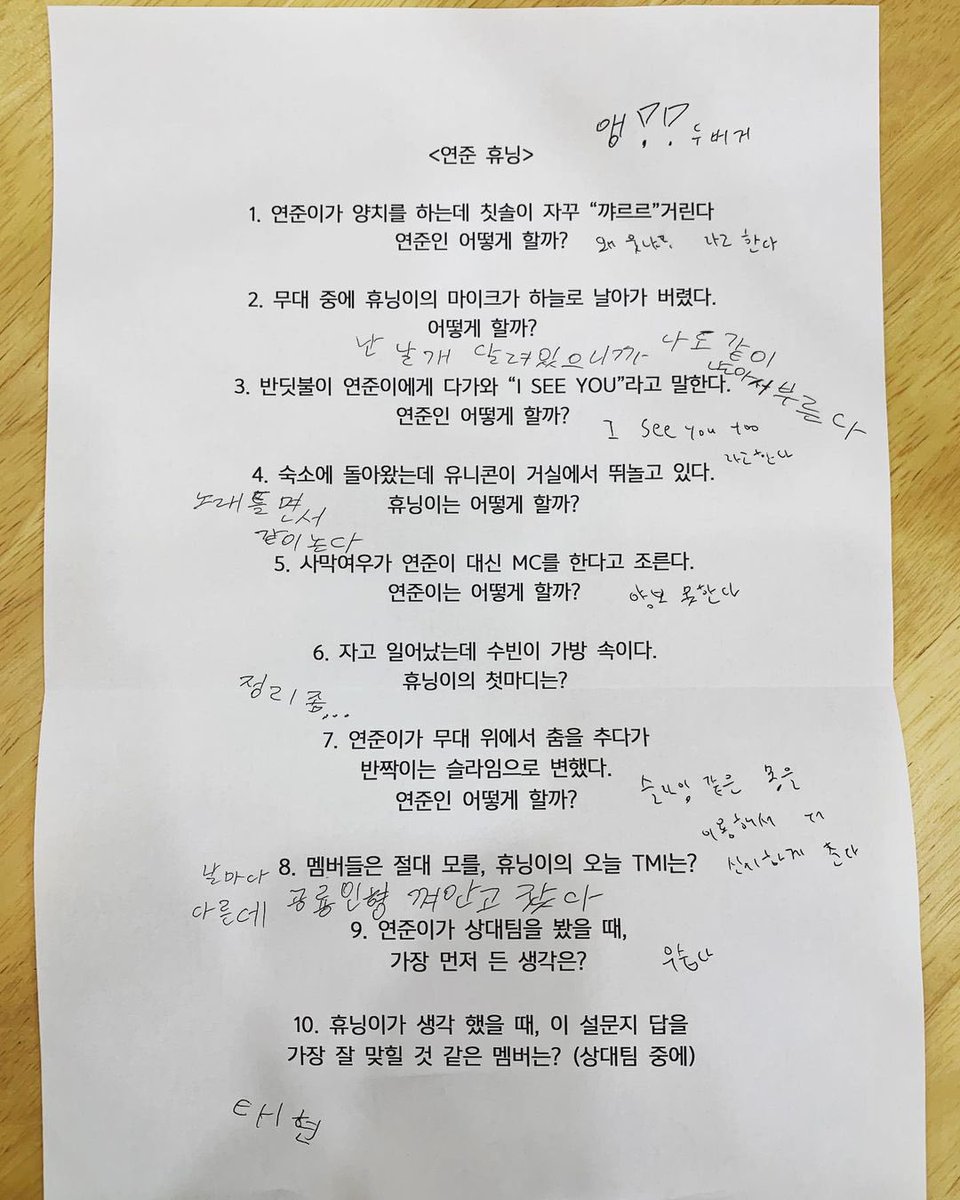 앵 !! 두버거
<연준 휴닝>
1. 연준이가 양치를 하는데 칫솔이 자꾸 “꺄르르”거린다
연준인 어떻게 할까? 왜 웃냐고. 라고 한다
2. 무대 중에 휴닝이의 마이크가 하늘로 날아가 버렸다.
어떻게 할까?
난 날개 달려있으니까 나도 같이
날아서 부른다
3. 반딧불이 연준이에게 다가와 “I SEE YOU”라고 말한다.
연준인 어떻게 할까? I See you too
라고한다
4. 숙소에 돌아왔는데 유니콘이 거실에서 뛰놀고 있다.
휴닝이는 어떻게 할까?
노래틀면서
같이 논다
5. 사막여우가 연준이 대신 MC를 한다고 조른다.
연준이는 어떻게 할까? 양보 못한다
6. 자고 일어났는데 수빈이 가방 속이다.
휴닝이의 첫마디는?
정리 좀...
7. 연준이가 무대 위에서 춤을 추다가
반짝이는 슬라임으로 변했다.
연준인 어떻게 할까? 슬라임 같은 몸을
이용해서 더
신기하게 춘다
8. 멤버들은 절대 모를, 휴닝이의 오늘 TMI는?
날마다
다른데 공룡인형 껴안고 잤다
9. 연준이가 상대팀을 봤을 때,
가장 먼저 든 생각은? 우습다
10. 휴닝이가 생각 했을 때, 이 설문지 답을
가장 잘 맞힐 것 같은 멤버는? (상대팀 중에)
태현